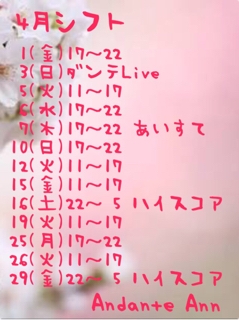 4月シフト
1(金)17〜22
3(日)ダンテLive
5(火)11〜17
6(水)17〜22
7(木)17〜22 あいすて
10(日)17〜22
12(火)11〜17
15(金)11〜17
16(土)22〜 5 ハイスコア
19(火)11〜17
25(月)17〜22
26(火)11〜17
29(金)22〜 5 ハイスコア
Andante Ann